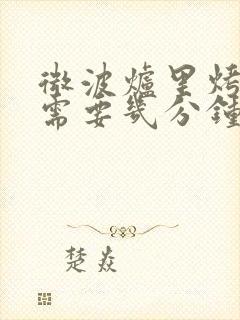 微波爐里烤
需要幾分鐘
楚焱